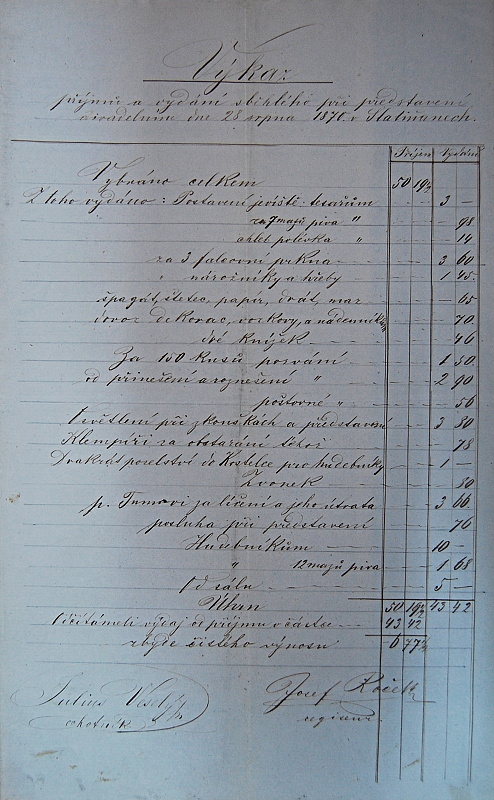 Výkaz
příjmů a vydání sběhlého při představení
divadelním dne 28 srpna 1870 v Slatiňanech.
Příjem Vydání
Vybráno celkem 50 19½
Z toho vydáno: Postavení jeviště: tesařům 3 —
za 7 mazů piva " 98
chleb polévka " 14
za 3 falcovní prkna 3 60
" nárožníky a hřeby 1 45
špagát, štětec, papír, drát, maz 65
dovoz dekorac, voskovy, a nádenníkům 70
dvě knížek 46
Za 150 kusů pozvání 1 50
od přinešení a roznešení " 2 90
poštovné " 56
Osvětlení při zkouškách a představení 3 80
Klempíři za obstarání téhož 78
Dvakrát poselství do Kostelce pro hudebníky 1 —
Zvonek 80
p. Tumovi za líčení a jeho útrata 3 66
posluha při představení 76
Hudebníkům 10 —
" 12 mazů piva 1 68
Od sálu 5 —
Úhrn 50 19½ 43 42
Odčítáme-li výdaj od příjmu v částce 43 42
zbyde čistého výnosu 6 77½
Julius Veselý
ochotník
Josef
regisseur.